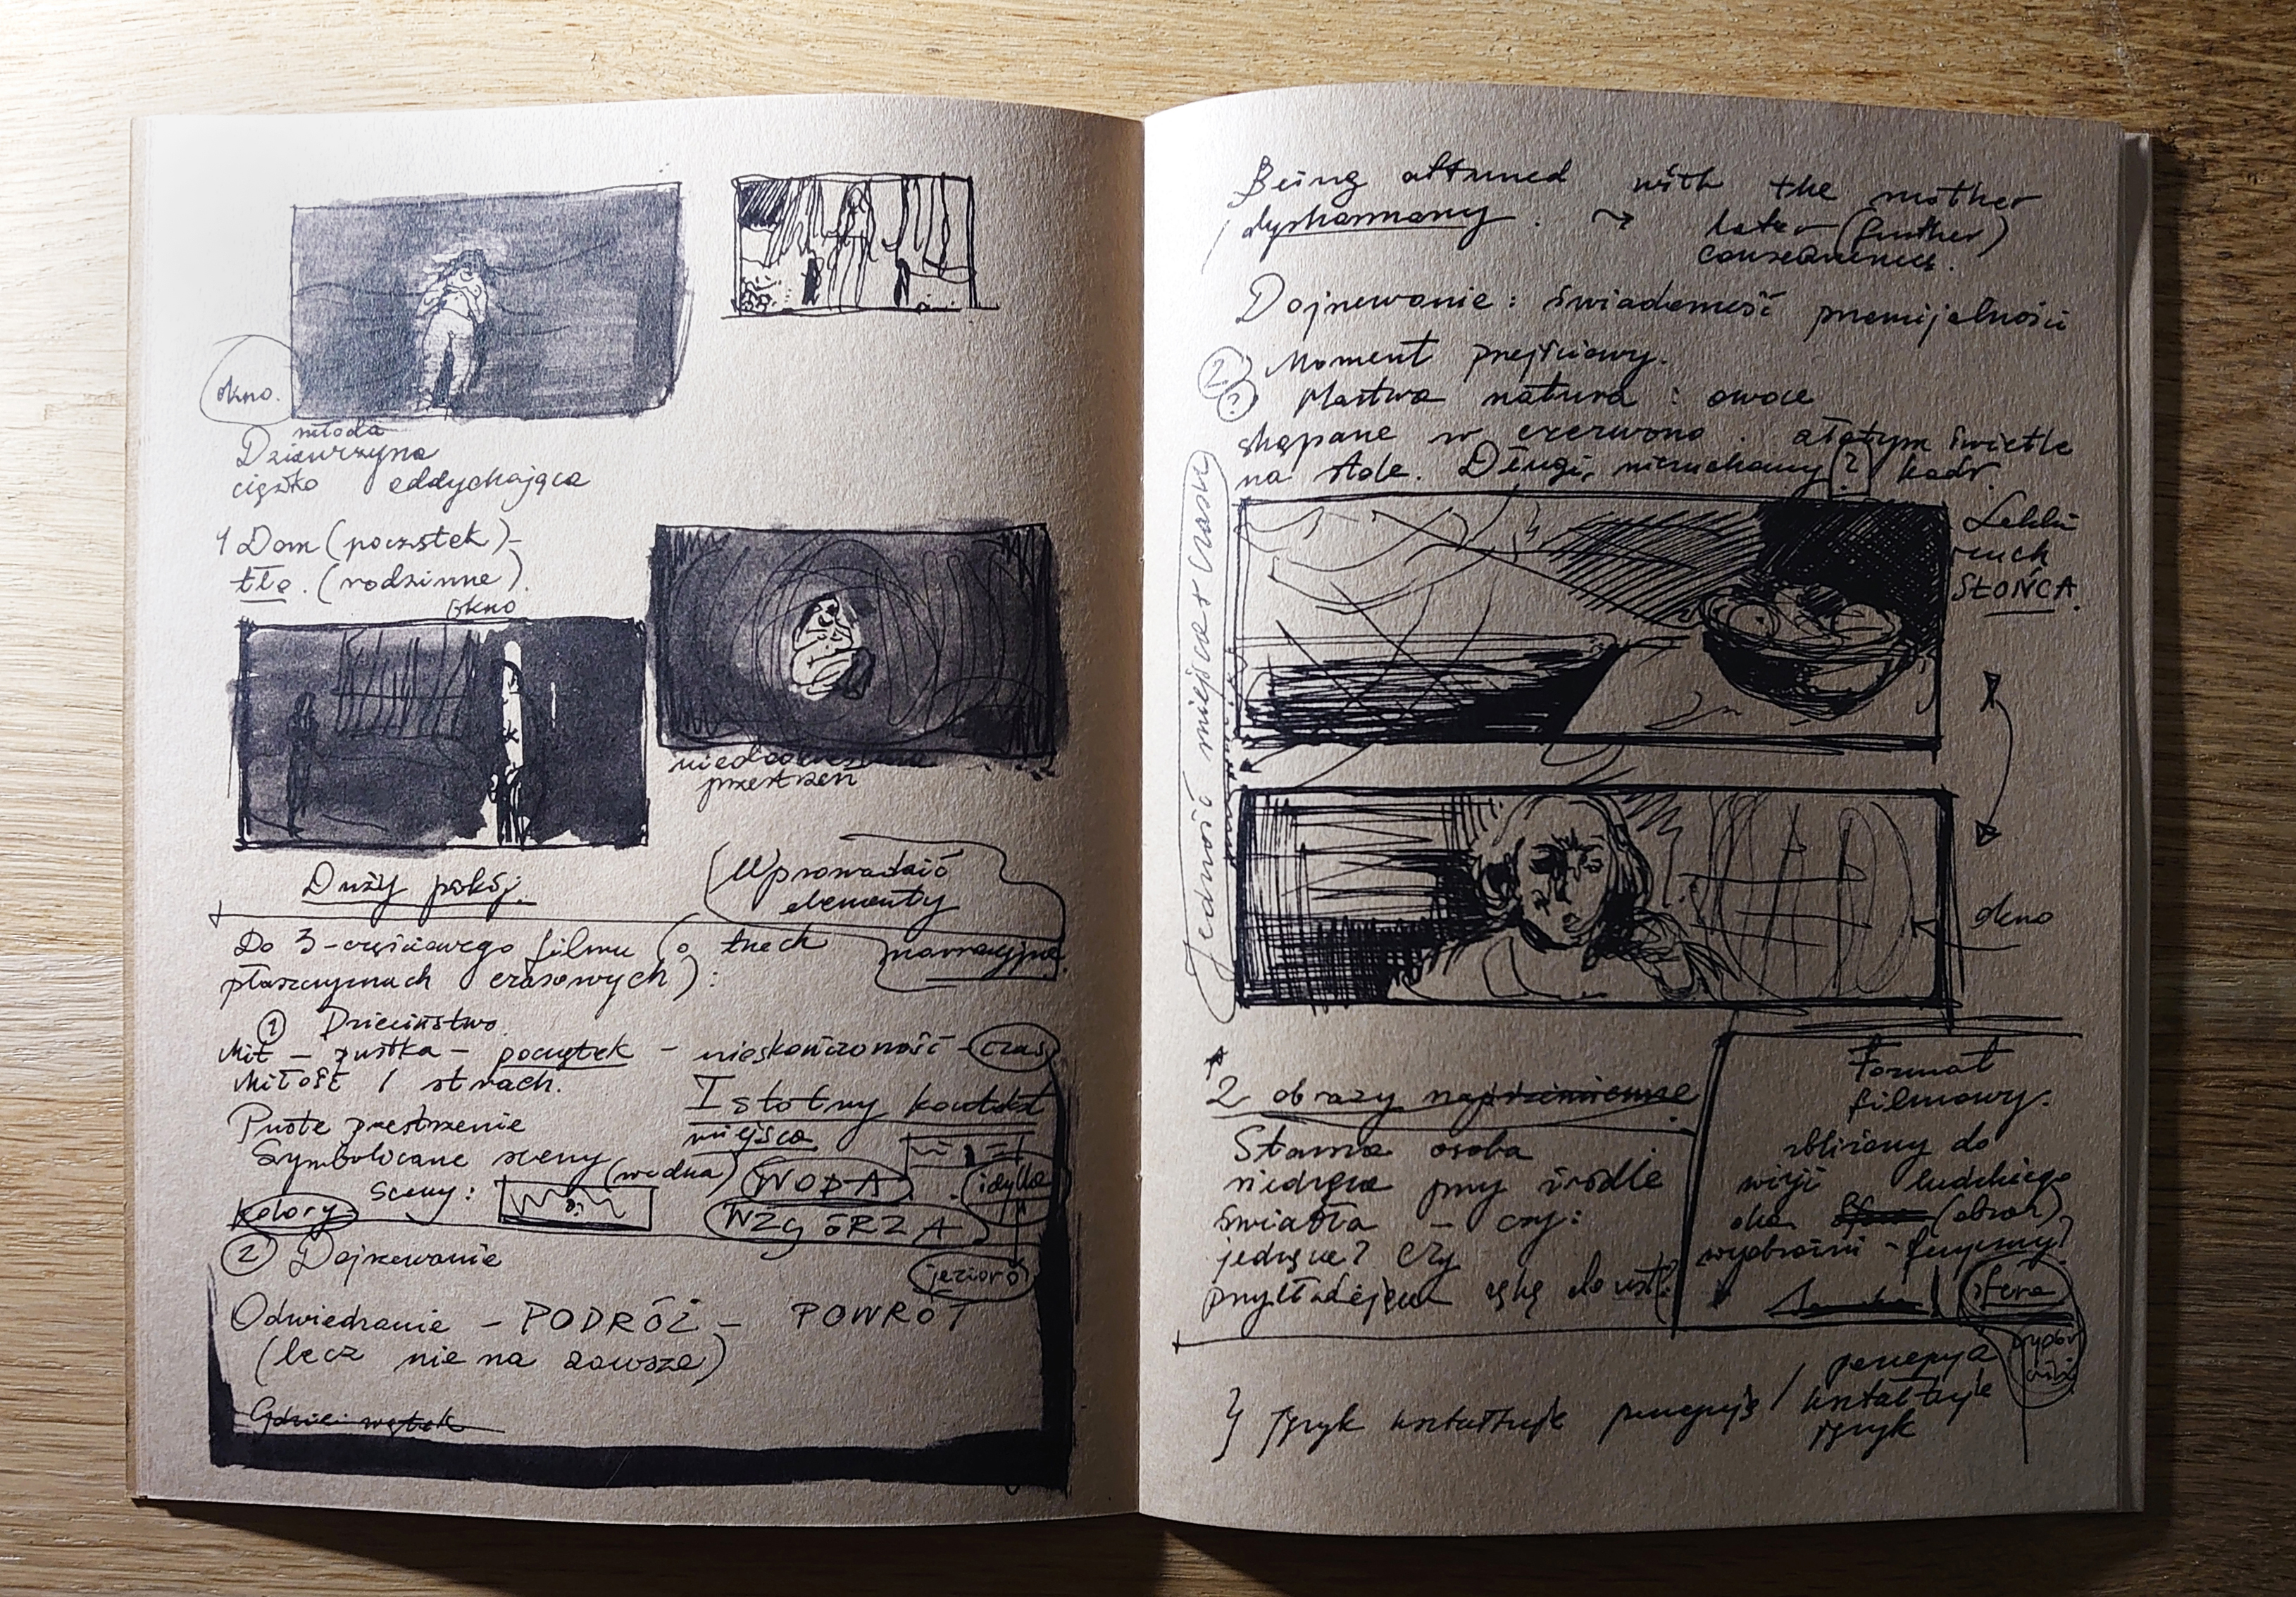 okno.
młoda
Dziewczyna
ciężko oddychająca
1 Dom (początek) -
tło. (rodzinne).
okno
przestrzeń
Duży pokój.
Wprowadzić
elementy
narracyjne.
Do 3-częściowego filmu (o trzech
płaszczyznach czasowych):
① Dzieciństwo
Mit - pustka - początek - nieskończoność - czas
Miłość / strach.
Istotny kontekst
miejsca
Puste przestrzenie
Symboliczne sceny (wodna)
sceny:
WODA
idylla
kolory
WZGÓRZA
② Dojrzewanie
jezioro
Odwiedzanie - PODRÓŻ - POWRÓT
(lecz nie na zawsze)
Gdzieś wątek
Being attuned with the mother
dysharmony. → later (further)
consequences.
Dojrzewanie: świadomość przemijalności
② Moment przejściowy.
? Martwa natura: owoce
skąpane w czerwono. złotym świetle
na stole. Długi, nieruchomy (?) kadr.
Jedność miejsca i czasu
Lekki
ruch
SŁOŃCA.
okno
2 obrazy
Starsza osoba
siedząca przy źródle
światła - czy:
jedząca? Czy
przykładająca rękę do ust?
Format
filmowy.
zbliżony do
wizji ludzkiego
oka (obraz)
wyobraźni -
sfera
język kształtuje percepcję / percepcja
kształtuje
język